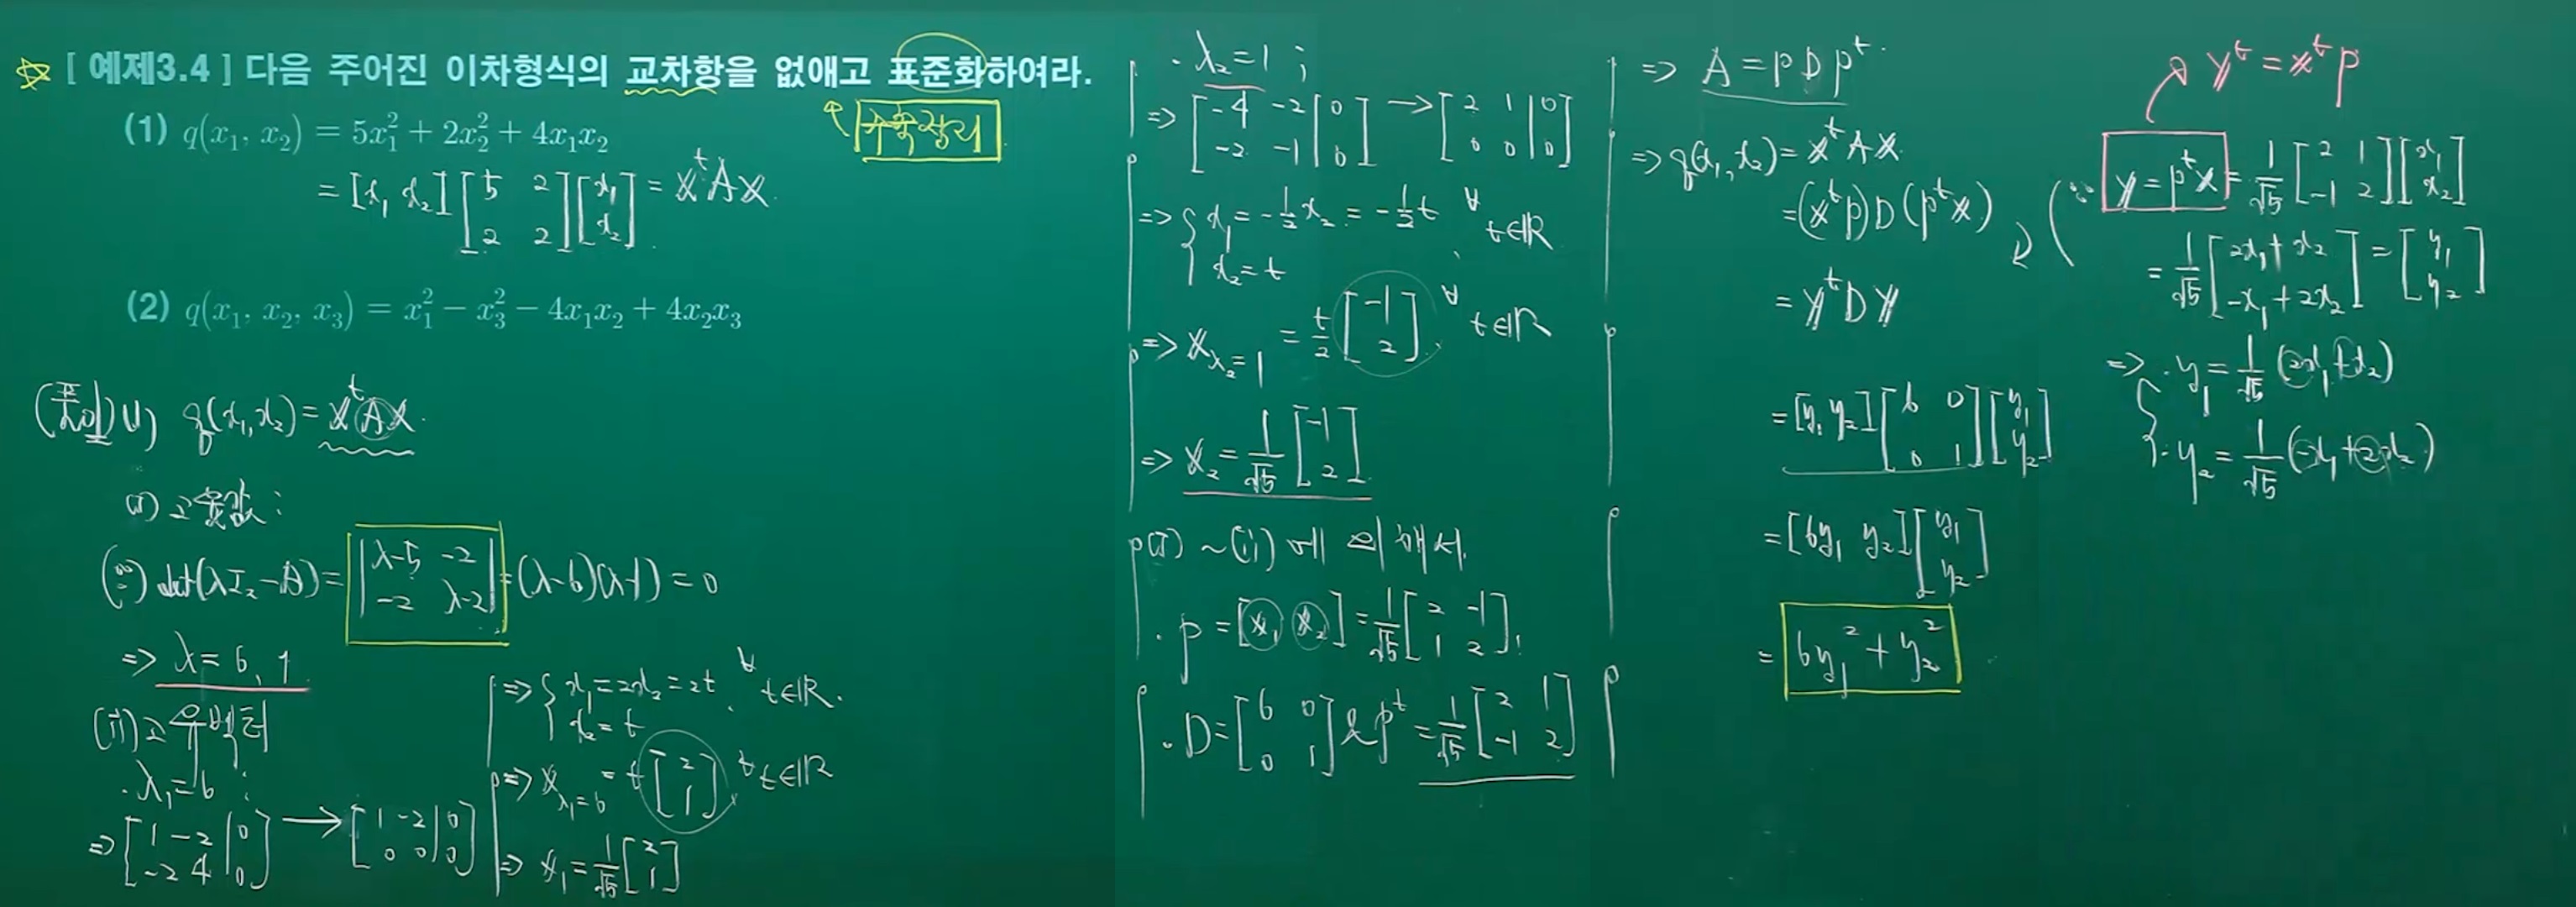 ☆ [ 예제3.4 ] 다음 주어진 이차형식의 교차항을 없애고 표준화하여라.
(1) q(x₁, x₂) = 5x₁² + 2x₂² + 4x₁x₂
= [x₁ x₂] [5 2; 2 2] [x₁; x₂] = xᵗAx.
(2) q(x₁, x₂, x₃) = x₁² − x₃² − 4x₁x₂ + 4x₂x₃
(풀이) (1) q(x₁, x₂) = xᵗAx.
(i) 고윳값 :
(∵) det(λI₂ − A) = |λ-5 -2; -2 λ-2| = (λ-6)(λ-1) = 0
⇒ λ = 6, 1
(ii) 고유벡터
· λ₁ = 6 ;
⇒ [1 -2 | 0; -2 4 | 0] → [1 -2 | 0; 0 0 | 0]
⇒ { x₁ = 2x₂ = 2t, ∀t∈ℝ.
x₂ = t
⇒ x_λ₁=6 = t [2; 1], ∀t∈ℝ
⇒ x₁ = 1/√5 [2; 1]
· λ₂ = 1 ;
⇒ [-4 -2 | 0; -2 -1 | 0] → [2 1 | 0; 0 0 | 0]
⇒ { x₁ = -1/2 x₂ = -1/2 t ∀t∈ℝ
x₂ = t
⇒ x_λ₂=1 = t/2 [-1; 2], ∀t∈ℝ
⇒ x₂ = 1/√5 [-1; 2]
(i) ~ (ii) 에 의해서
· P = [x₁ x₂] = 1/√5 [2 -1; 1 2],
· D = [6 0; 0 1] & Pᵗ = 1/√5 [2 1; -1 2]
⇒ A = PDPᵗ.
⇒ q(x₁, x₂) = xᵗAx
= (xᵗP)D(Pᵗx)
= yᵗDy
= [y₁ y₂] [6 0; 0 1] [y₁; y₂]
= [6y₁ y₂] [y₁; y₂]
= 6y₁² + y₂²
yᵗ = xᵗP
(∵ y = Pᵗx = 1/√5 [2 1; -1 2] [x₁; x₂]
= 1/√5 [2x₁ + x₂; -x₁ + 2x₂] = [y₁; y₂]
⇒ { · y₁ = 1/√5 (2x₁ + x₂)
· y₂ = 1/√5 (-x₁ + 2x₂)